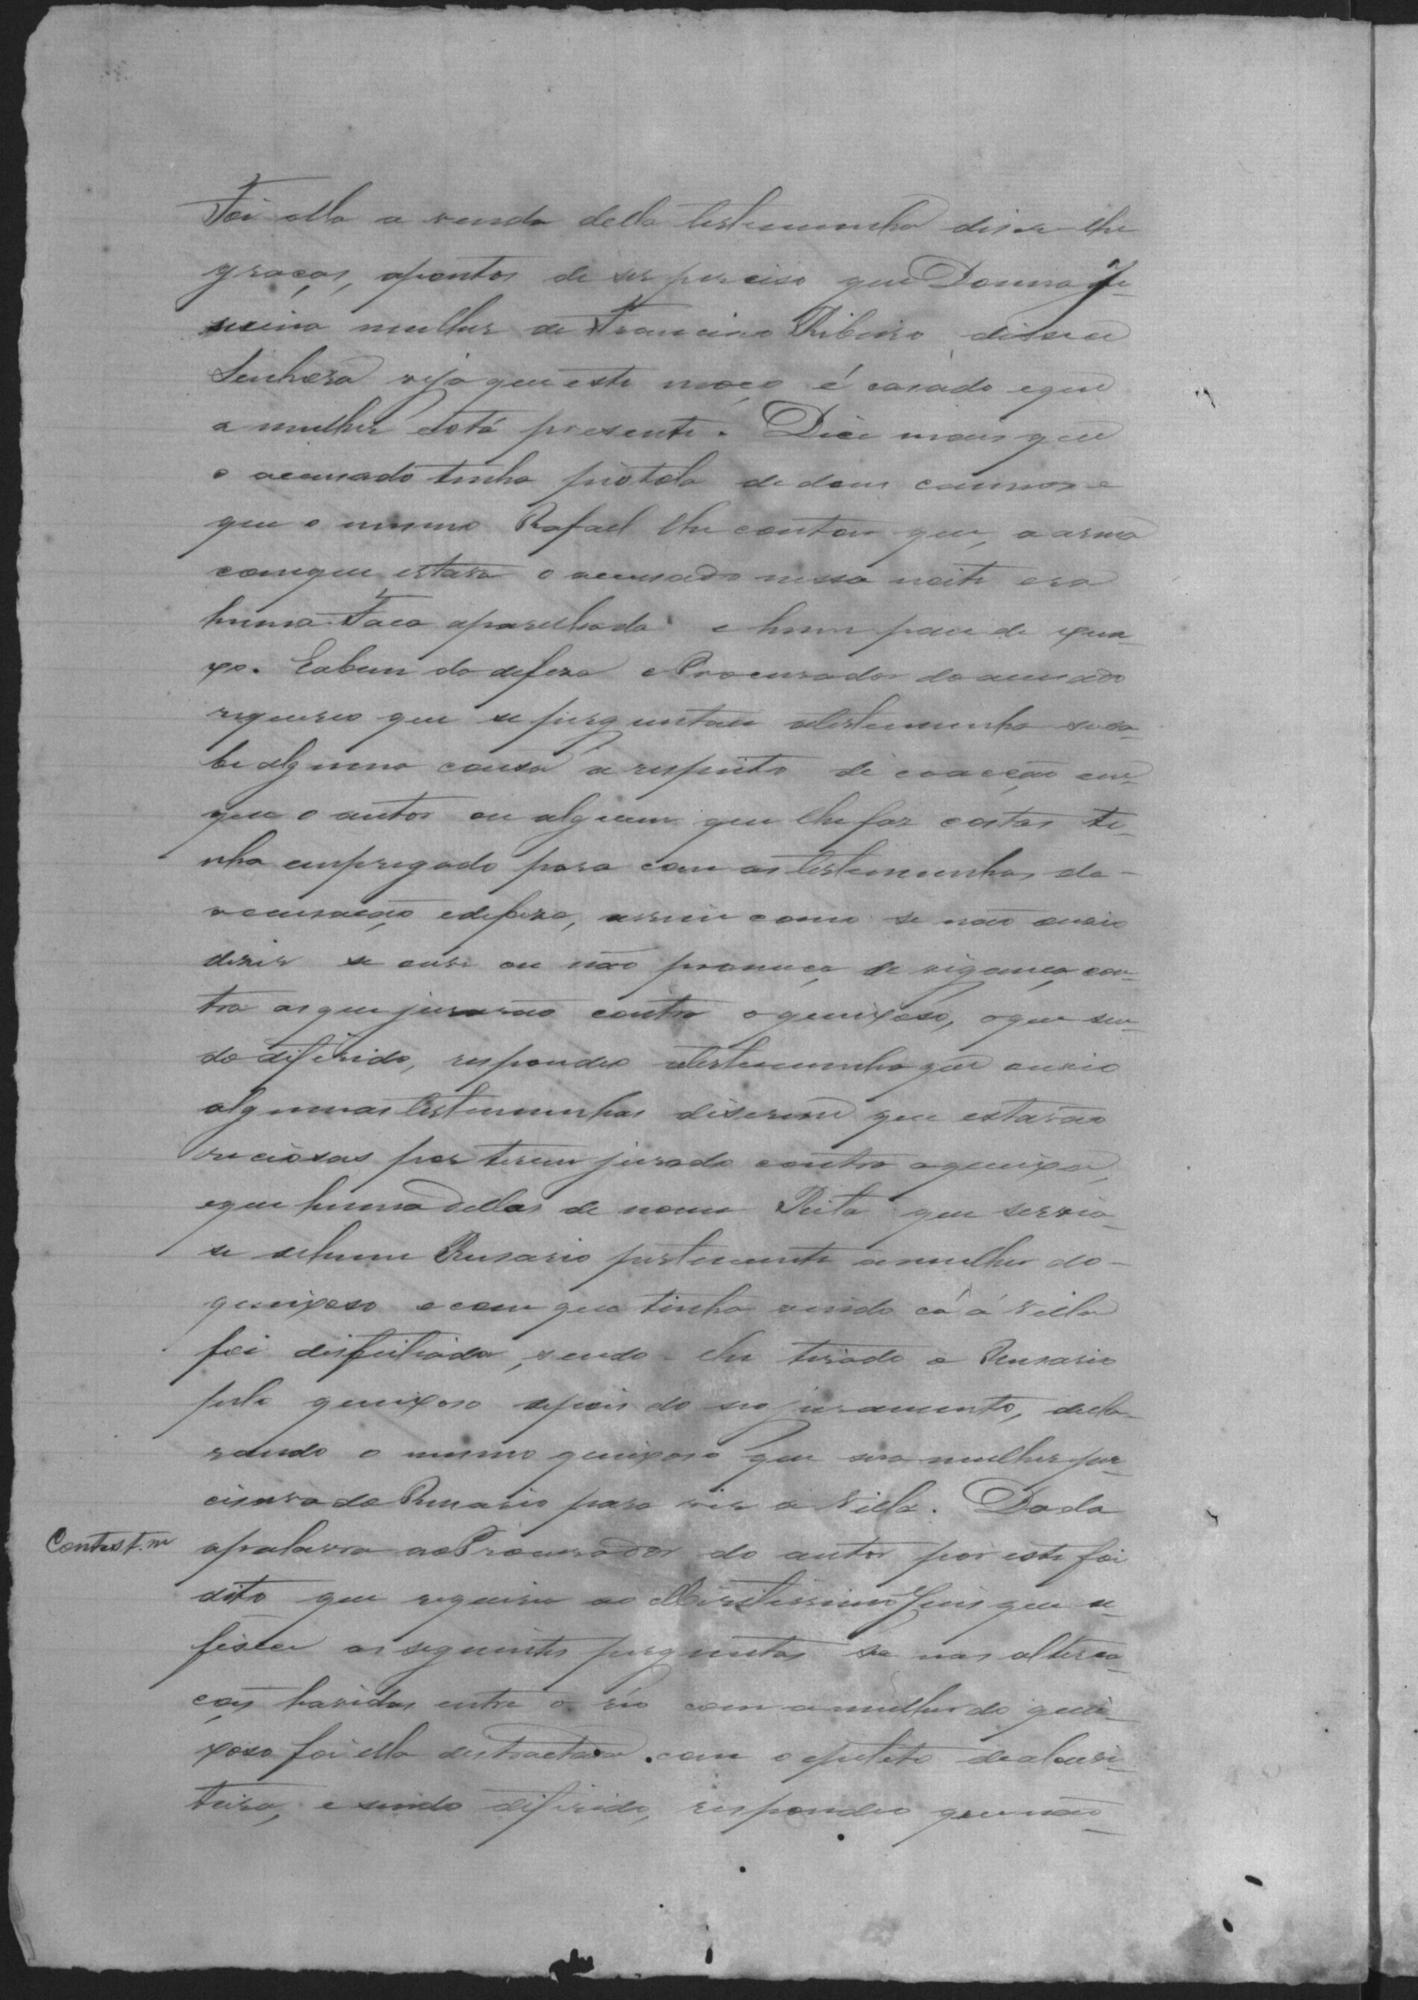 Foi ella a venda della testemunha diser-lhe
graças, apontos de ser perciso que Donna Je-
suina mulher de Francino Ribeiro dissece
Senhora veja que este moço é casado eque
a mulher está presente. Dice mais que
o accusado tinha pistola de dous cannos e
que o mesmo Rafael lhe contou que, a arma
comque estava o accusado nessa noite era
huma Faca aparelhada e hum páu de gua-
xo. Eabem da defeza o Procurador do accusado
requereo que se perguntace atestemunha se sa-
be alguma cousa a respeito de coacção em
que o autor ou alguem que lhe faz costas te-
nha empregado para com as testemunhas da
accusação edefeza, assim como se não ouvio
dizer se ouve ou não promeça de vigança con-
tra asque jurarão contra oqueixoso, oque sen-
do difirido, respondeo atestemunha que ouvio
algumas testemunhas diserem que estavão
reciosas por terem jurado contra aqueixa,
eque huma dellas de nome Rita que servia-
se dehum Rusario pertencente a mulher do
queixoso ecom que tinha vindo cá á villa
foi disfeitiada, sendo-lhe tirado o Rusario
pelo queixoso depois do seo juramento, decla-
rando o mesmo queixoso que sua mulher per-
cisava do Rusario para vir a Villa. Dada
Contest.m apalavra aoProcurador do autor por este foi
dito que requeria ao Meritissimo Juis que se
fisece as seguintes perguntas se nas alterca-
çoes havidas entre o réo com amulher do quei-
xoso foi ella destractada com o epiteto dealcovi-
teira, e sendo difirido, respondeo que não